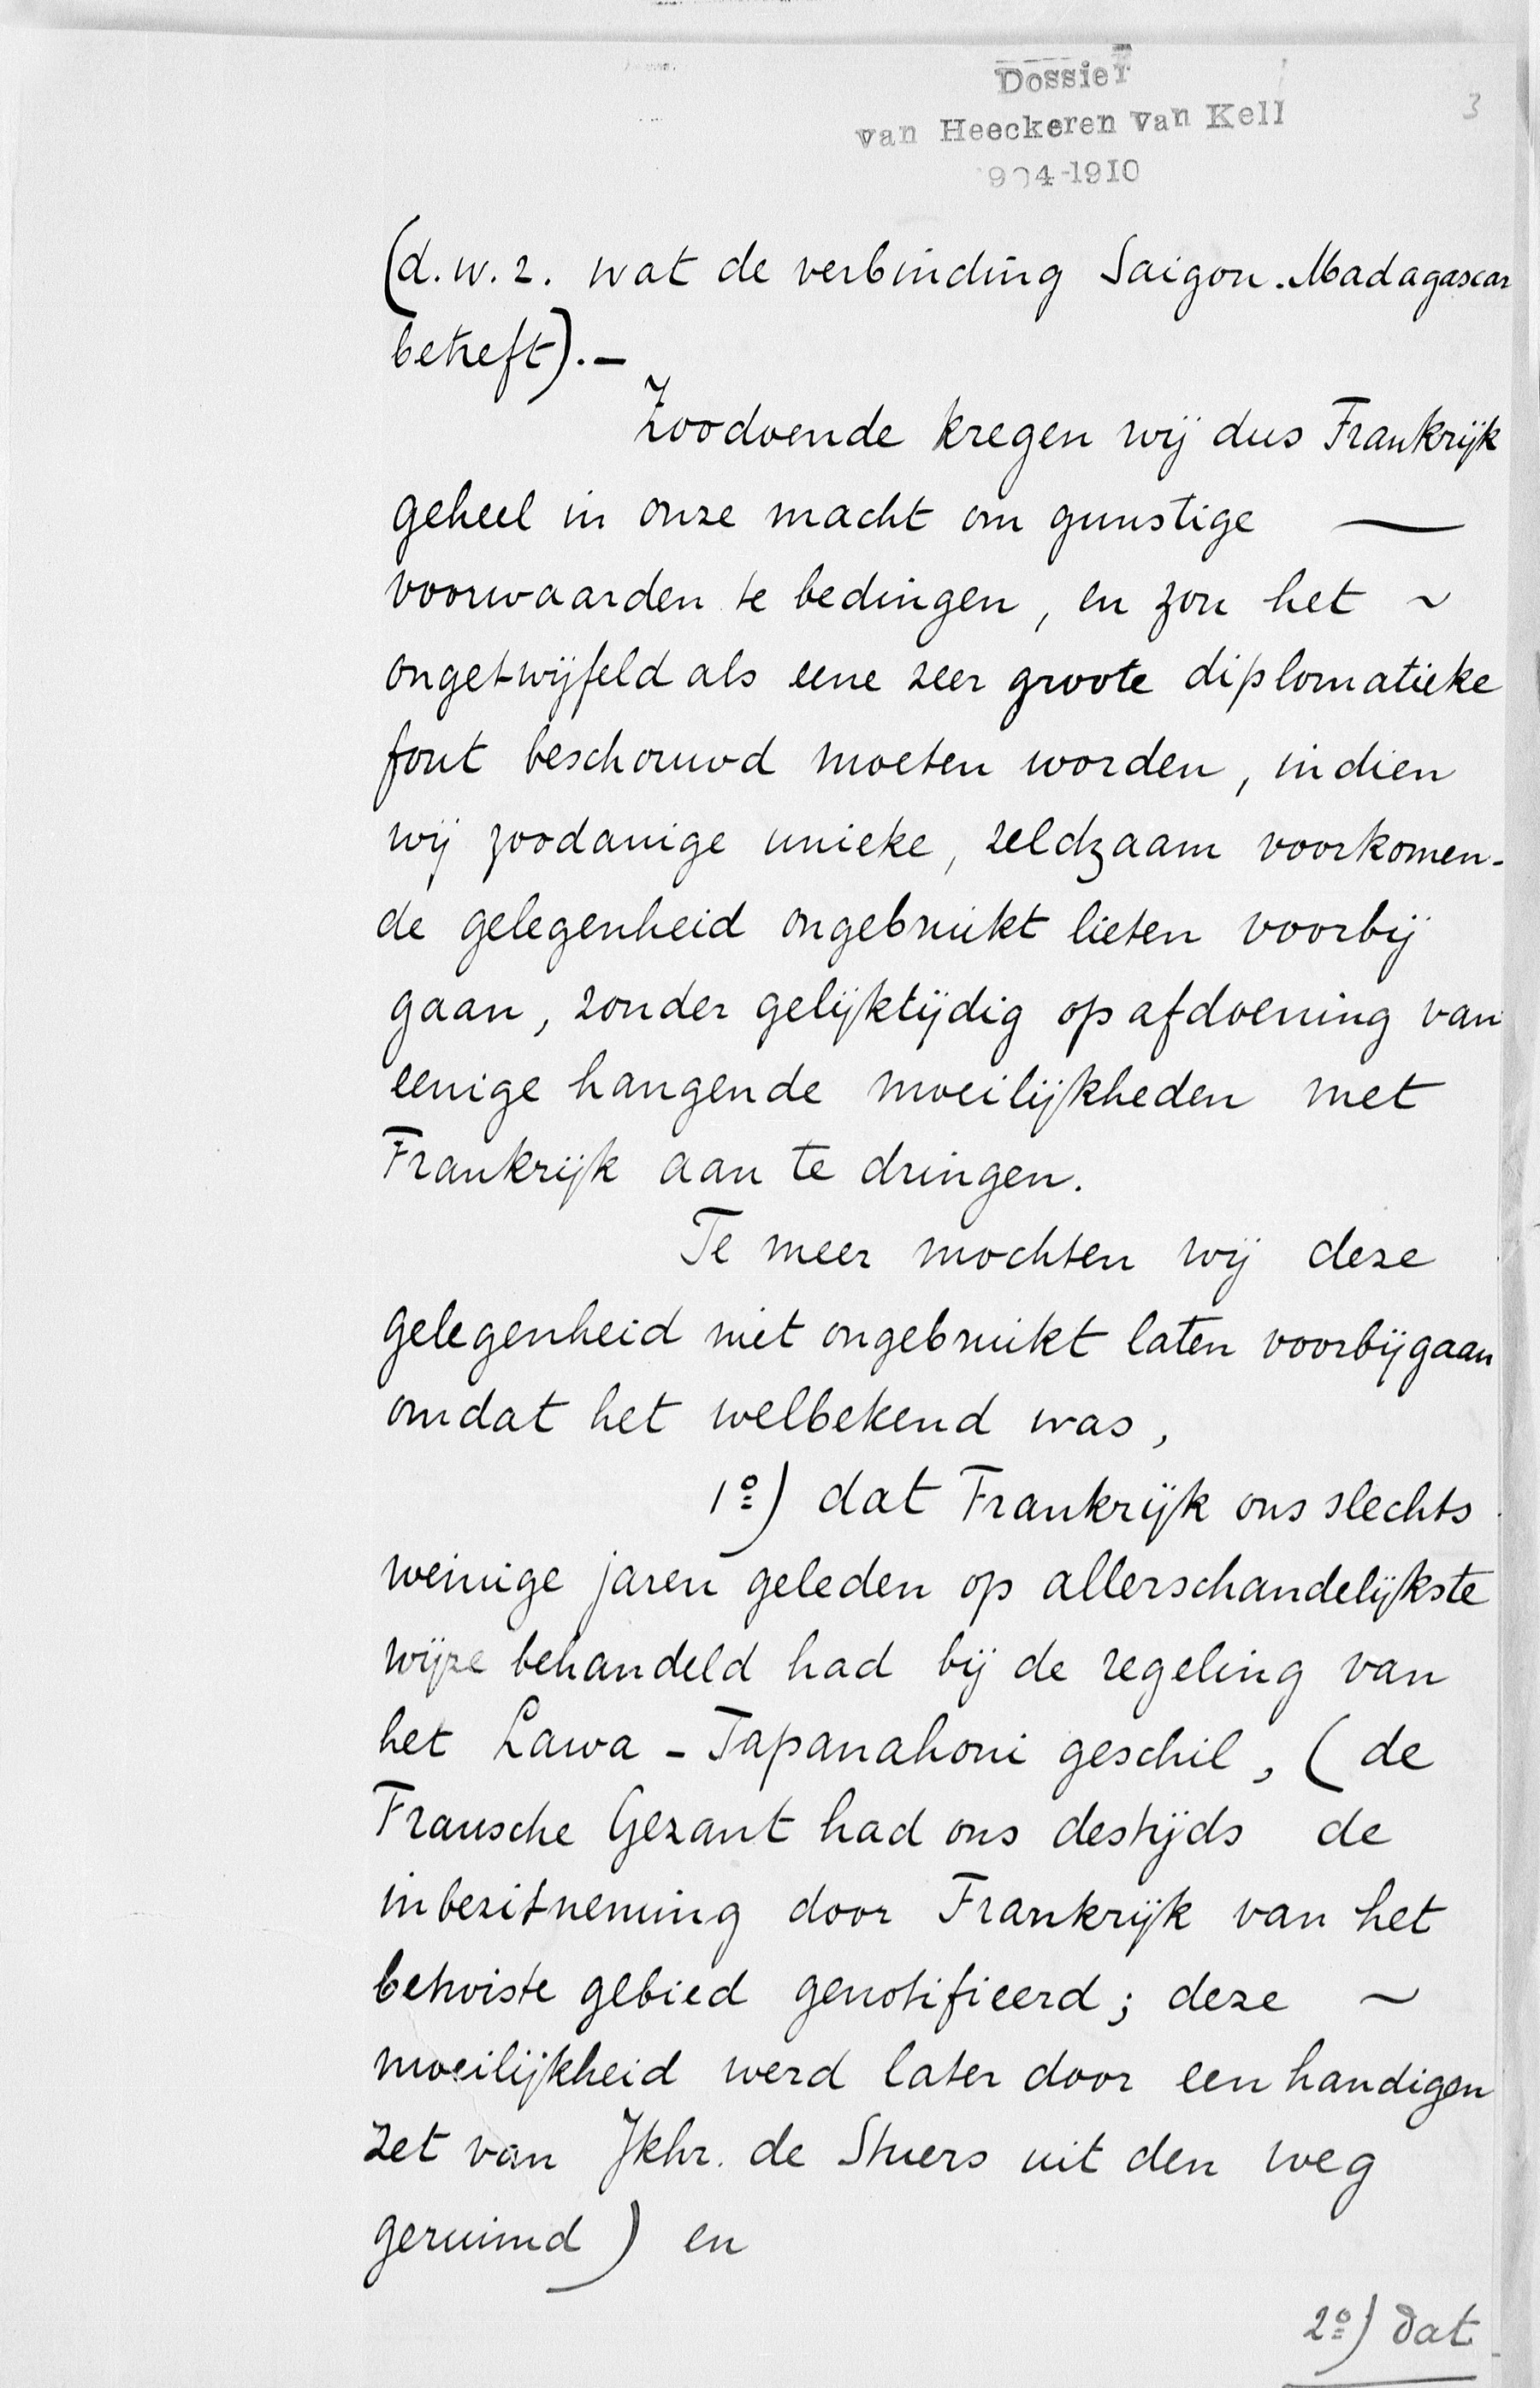 Dossier
van Heeckeren van Kell
1904-1910
3
(d.w.z. wat de verbinding Saigon-Madagascar
betreft).-
Zoodoende kregen wij dus Frankrijk
geheel in onze macht om gunstige —
voorwaarden te bedingen, en zou het ~
ongetwijfeld als eene zeer groote diplomatieke
fout beschouwd moeten worden, indien
wij zoodanige unieke, zeldzaam voorkomen-
de gelegenheid ongebruikt lieten voorbij
gaan, zonder gelijktijdig op afdoening van
eenige hangende moeilijkheden met
Frankrijk aan te dringen.
Te meer mochten wij deze
gelegenheid niet ongebruikt laten voorbijgaan
omdat het welbekend was,
1º) dat Frankrijk ons slechts
weinige jaren geleden op allerschandelijkste
wijze behandeld had bij de regeling van
het Lawa-Tapanahoni geschil, (de
Fransche Gezant had ons destijds de
inbezitneming door Frankrijk van het
betwiste gebied genotifieerd; deze ~
moeilijkheid werd later door een handigen
zet van Jkhr. de Stuers uit den weg
geruimd) en
2º) dat